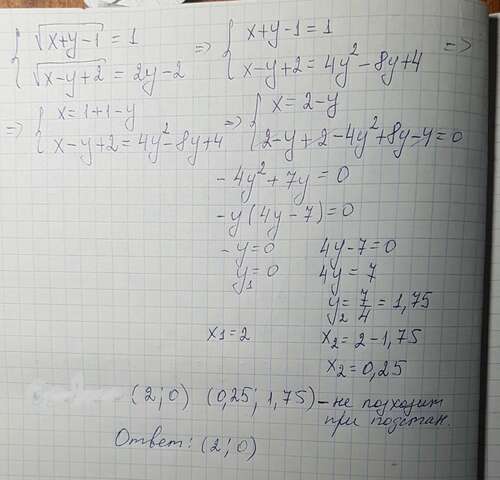 { √(x+y-1) = 1 => { x+y-1=1 =>
{ √(x-y+2) = 2y-2 { x-y+2=4y²-8y+4
=> { x=1+1-y => { x=2-y
{ x-y+2=4y²-8y+4 { 2-y+2-4y²+8y-4=0
-4y²+7y=0
-y(4y-7)=0
-y=0 4y-7=0
y₁=0 4y=7
y₂=7/4=1,75
x₁=2 x₂=2-1,75
x₂=0,25
(2;0) (0,25; 1,75) - не подходит
при подстан.
Ответ: (2;0)